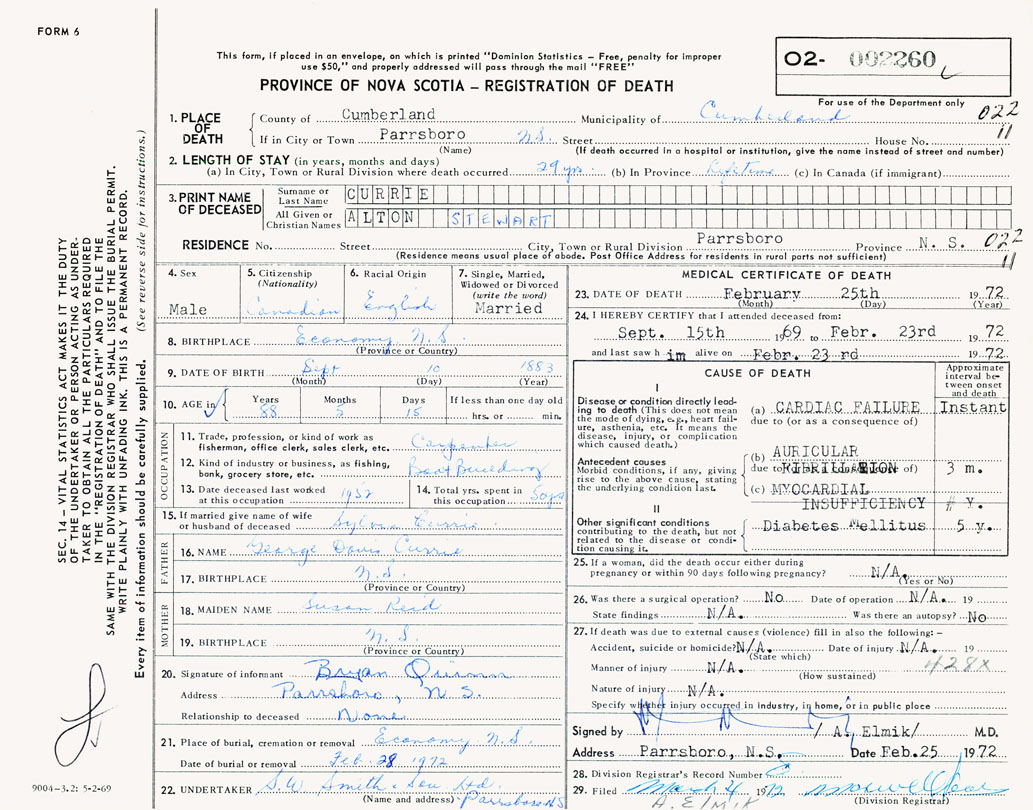 FORM 6
This form, if placed in an envelope, on which is printed "Dominion Statistics – Free, penalty for improper
use $50," and properly addressed will pass through the mail "FREE"
02- 002260
For use of the Department only
PROVINCE OF NOVA SCOTIA – REGISTRATION OF DEATH
022
11
1. PLACE OF DEATH
County of Cumberland Municipality of Cumberland
If in City or Town Parrsboro N.S. Street House No.
(Name) (If death occurred in a hospital or institution, give the name instead of street and number)
2. LENGTH OF STAY (in years, months and days)
(a) In City, Town or Rural Division where death occurred 29 yrs. (b) In Province Lifetime (c) In Canada (if immigrant)
3. PRINT NAME OF DECEASED
Surname or Last Name CURRIE
All Given or Christian Names ALTON STEWART
RESIDENCE No. Street City, Town or Rural Division Parrsboro Province N. S. 022
11
(Residence means usual place of abode. Post Office Address for residents in rural parts not sufficient)
4. Sex
Male
5. Citizenship
(Nationality)
Canadian
6. Racial Origin
English
7. Single, Married,
Widowed or Divorced
(write the word)
Married
8. BIRTHPLACE Economy N.S.
(Province or Country)
9. DATE OF BIRTH Sept 10 1883
(Month) (Day) (Year)
10. AGE in Years Months Days If less than one day old
88 5 15 hrs. or min.
OCCUPATION
11. Trade, profession, or kind of work as
fisherman, office clerk, sales clerk, etc. Carpenter
12. Kind of industry or business, as fishing,
bank, grocery store, etc. Boat Building
13. Date deceased last worked
at this occupation 1952
14. Total yrs. spent in
this occupation 50 yrs
15. If married give name of wife
or husband of deceased Sylvia Currie
FATHER
16. NAME George Davis Currie
17. BIRTHPLACE N.S.
(Province or Country)
MOTHER
18. MAIDEN NAME Susan Reid
19. BIRTHPLACE N.S.
(Province or Country)
20. Signature of informant Bryan Quinn
Address Parrsboro, N.S.
Relationship to deceased None
21. Place of burial, cremation or removal Economy N.S.
Date of burial or removal Feb. 28 1972
22. UNDERTAKER S.W. Smith & Son Ltd.
(Name and address) Parrsboro N.S
MEDICAL CERTIFICATE OF DEATH
23. DATE OF DEATH February 25th 1972
(Month) (Day) (Year)
24. I HEREBY CERTIFY that I attended deceased from:
Sept. 15th 1969 to Febr. 23rd 1972
and last saw h im alive on Febr. 23 rd 1972.
CAUSE OF DEATH
Approximate
interval be-
tween onset
and death
I
Disease or condition directly lead-
ing to death (This does not mean
the mode of dying, e.g., heart fail-
ure, asthenia, etc. It means the
disease, injury, or complication
which caused death.)
(a) CARDIAC FAILURE Instant
due to (or as a consequence of)
Antecedent causes
Morbid conditions, if any, giving
rise to the above cause, stating
the underlying condition last.
(b) AURICULAR
due to (or as a consequence of) FIBRILLATION 3 m.
(c) MYOCARDIAL
INSUFFICIENCY # Y.
II
Other significant conditions
contributing to the death, but not
related to the disease or condi-
tion causing it.
Diabetes Mellitus 5 y.
25. If a woman, did the death occur either during
pregnancy or within 90 days following pregnancy? N/A.
(Yes or No)
26. Was there a surgical operation? No Date of operation N/A. 19
State findings N/A. Was there an autopsy? No
27. If death was due to external causes (violence) fill in also the following: –
Accident, suicide or homicide? N/A. Date of injury N/A. 19
(State which)
428X
Manner of injury N/A.
(How sustained)
Nature of injury N/A.
Specify whether injury occurred in industry, in home, or in public place
Signed by / A. Elmik/ M.D.
Address Parrsboro, N.S. Date Feb.25 1972
28. Division Registrar's Record Number
29. Filed March 4 1972
(Division Registrar)
A. Elmik
SEC. 14 – VITAL STATISTICS ACT MAKES IT THE DUTY
OF THE UNDERTAKER OR PERSON ACTING AS UNDER-
TAKER TO OBTAIN ALL THE PARTICULARS REQUIRED
IN THE "REGISTRATION OF DEATH" AND TO FILE THE
SAME WITH THE DIVISION REGISTRAR WHO SHALL ISSUE THE BURIAL PERMIT.
WRITE PLAINLY WITH UNFADING INK. THIS IS A PERMANENT RECORD.
Every item of information should be carefully supplied. (See reverse side for instructions.)
9004–3.2: 5-2-69